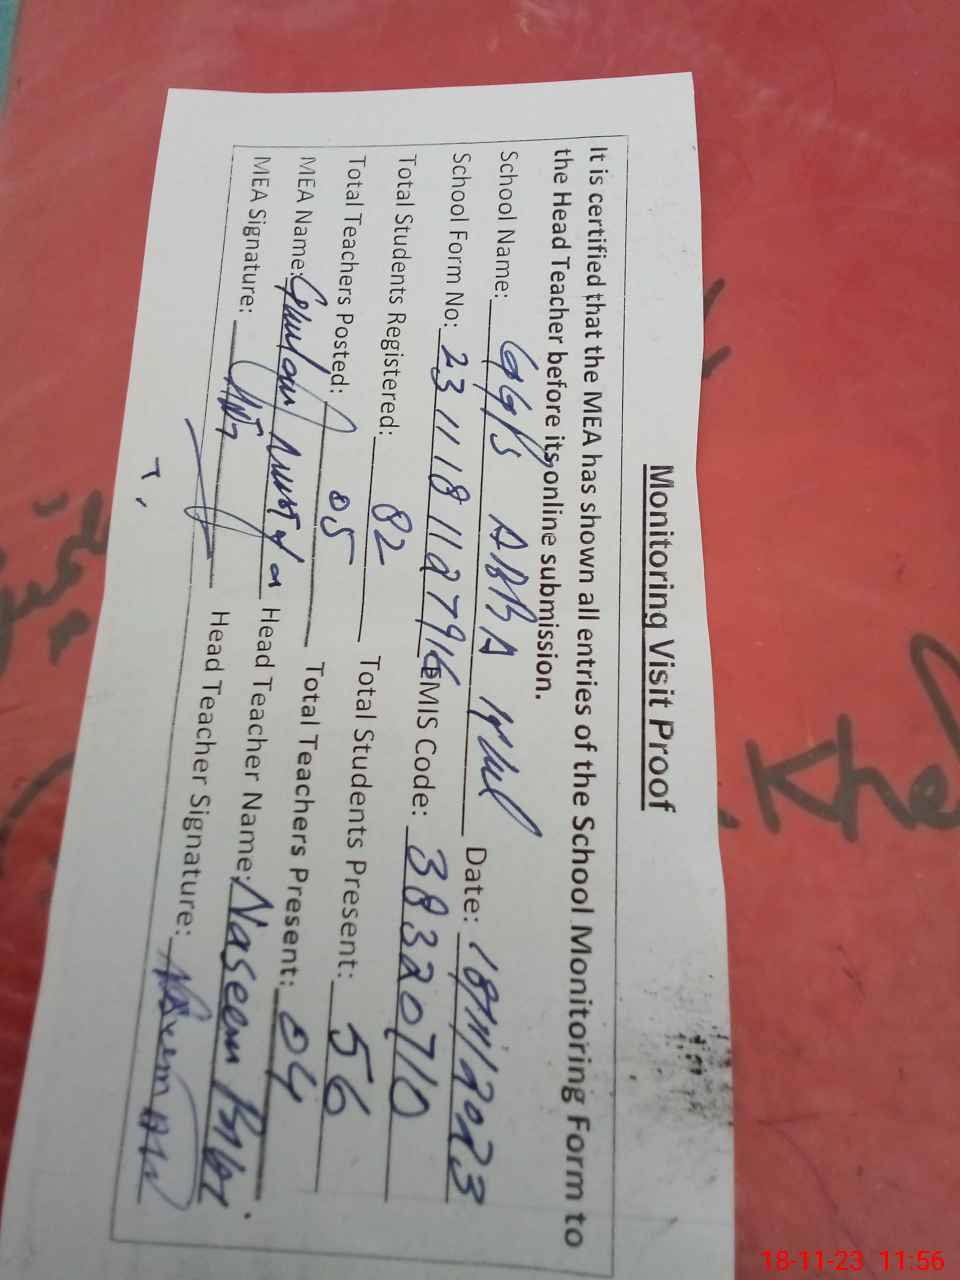 Monitoring Visit Proof
It is certified that the MEA has shown all entries of the School Monitoring Form to
the Head Teacher before its online submission.
School Name: GGPS ABBA Date: 18/11/2023
School Form No: 23111811027916 EMIS Code: 38320710
Total Students Registered: 82 Total Students Present: 56
Total Teachers Posted: 05 Total Teachers Present: 04
MEA Name: Head Teacher Name: Naseem Bibi
MEA Signature: Head Teacher Signature:
Khe
18-11-23 11:56